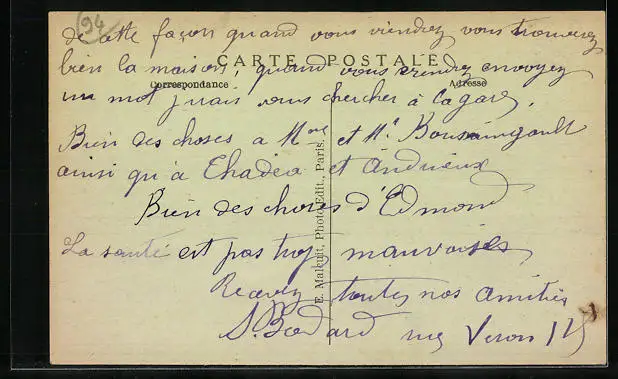 94
de cette façon quand vous viendrez vous trouverez
CARTE POSTALE
bien la maison, quand vous viendrez envoyez
Correspondance
Adresse
un mot j'irais vous chercher à la gare,
Bien des choses a Mme et Mr Boussaingault
ainsi qu'à Thadea et Andrieux
Bien des choses d'Edmond
La santé est pas trop mauvaises
Recevez toutes nos amitiés
S. Bodard rue Veron 115
E. Malcuit, Photo-Édit., Paris.